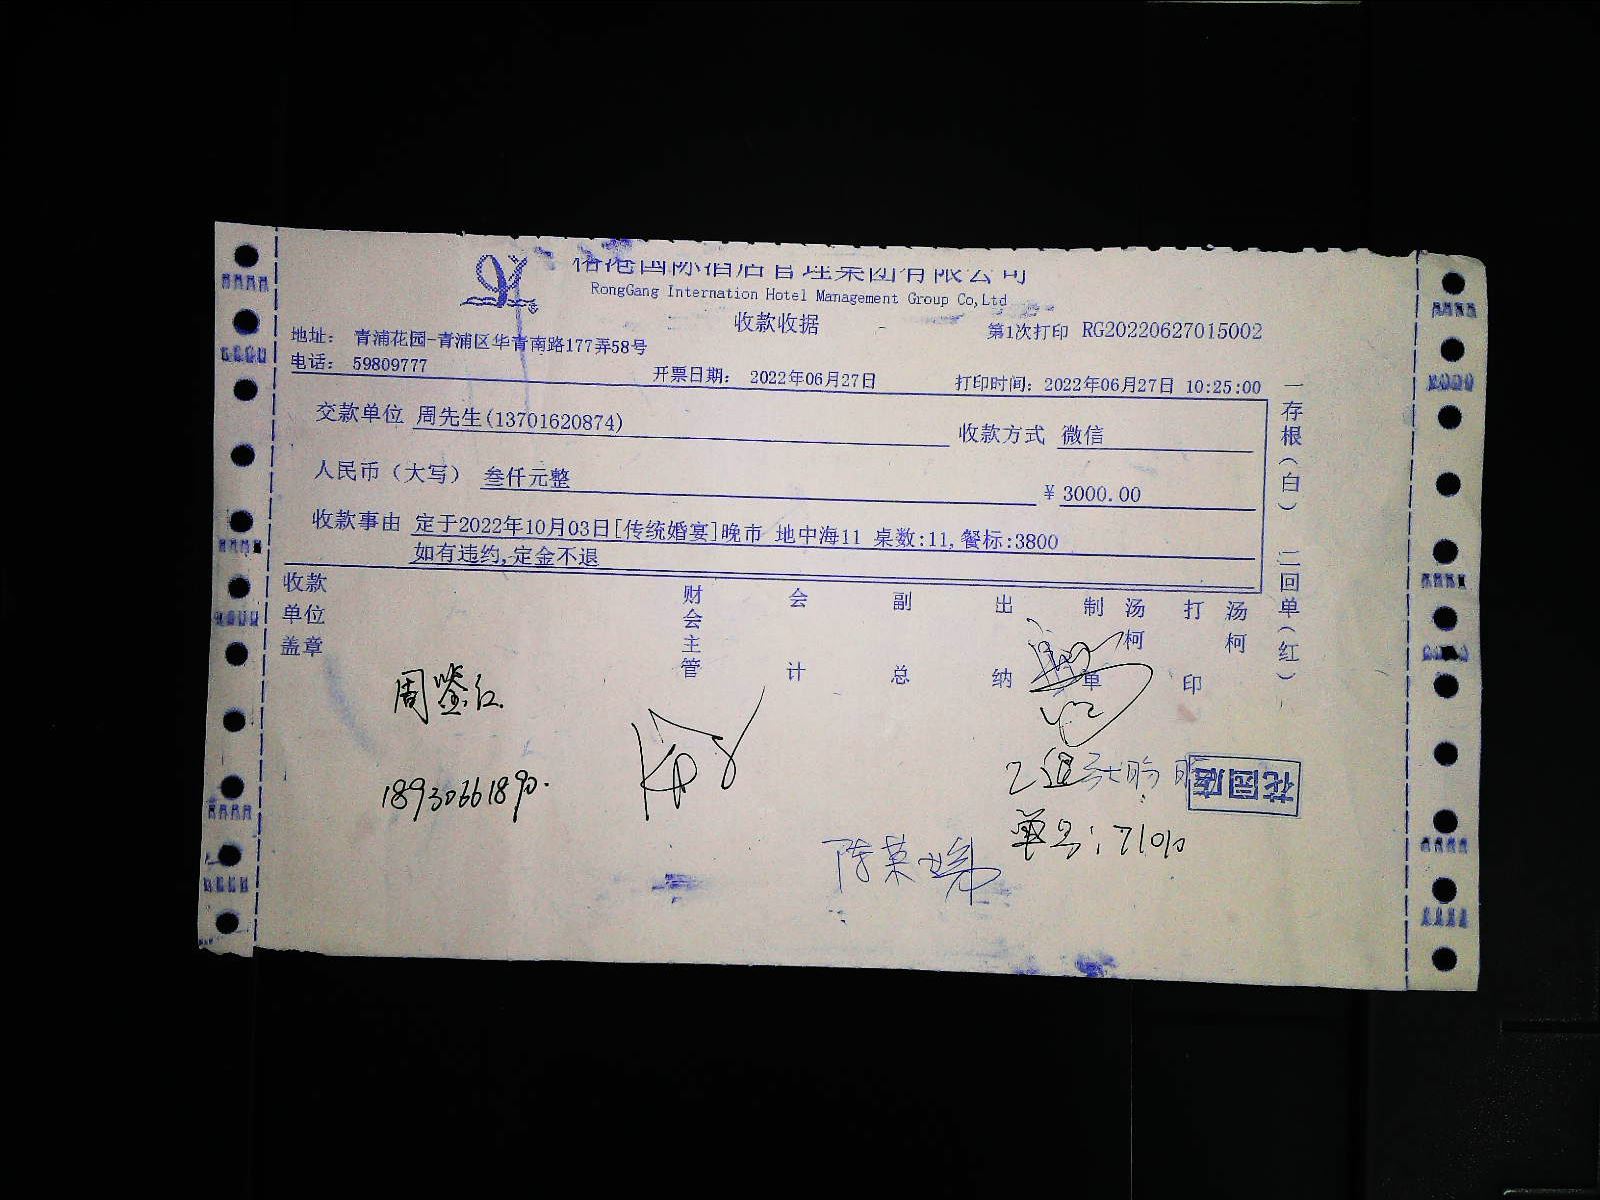 国际酒店管理集团有限公司
RongGang Internation Hotel Management Group Co,Ltd
收款收据
第1次打印 RG20220627015002
地址： 青浦花园-青浦区华青南路177弄58号
电话： 59809777
开票日期： 2022年06月27日
打印时间：2022年06月27日 10:25:00
交款单位 周先生(13701620874)
收款方式 微信
人民币（大写） 叁仟元整
¥ 3000.00
收款事由 定于2022年10月03日[传统婚宴]晚市 地中海11 桌数:11,餐标:3800
如有违约,定金不退
一存根（白） 二回单（红）
收款单位盖章
财会主管
会计
副总
出纳
制单 汤柯
打印 汤柯
18930661890.
花园店
单号：7100